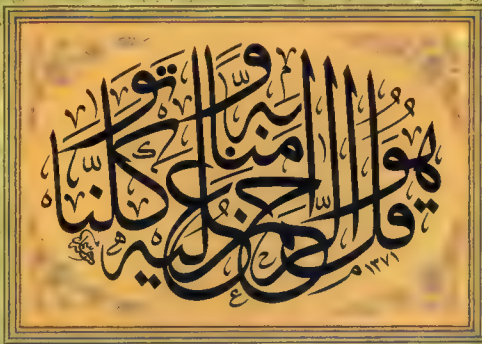 قُلْ هُوَ الرَّحْمٰنُ اٰمَنَّا بِهٖ وَعَلَيْهِ تَوَكَّلْنَا
١٣٧١